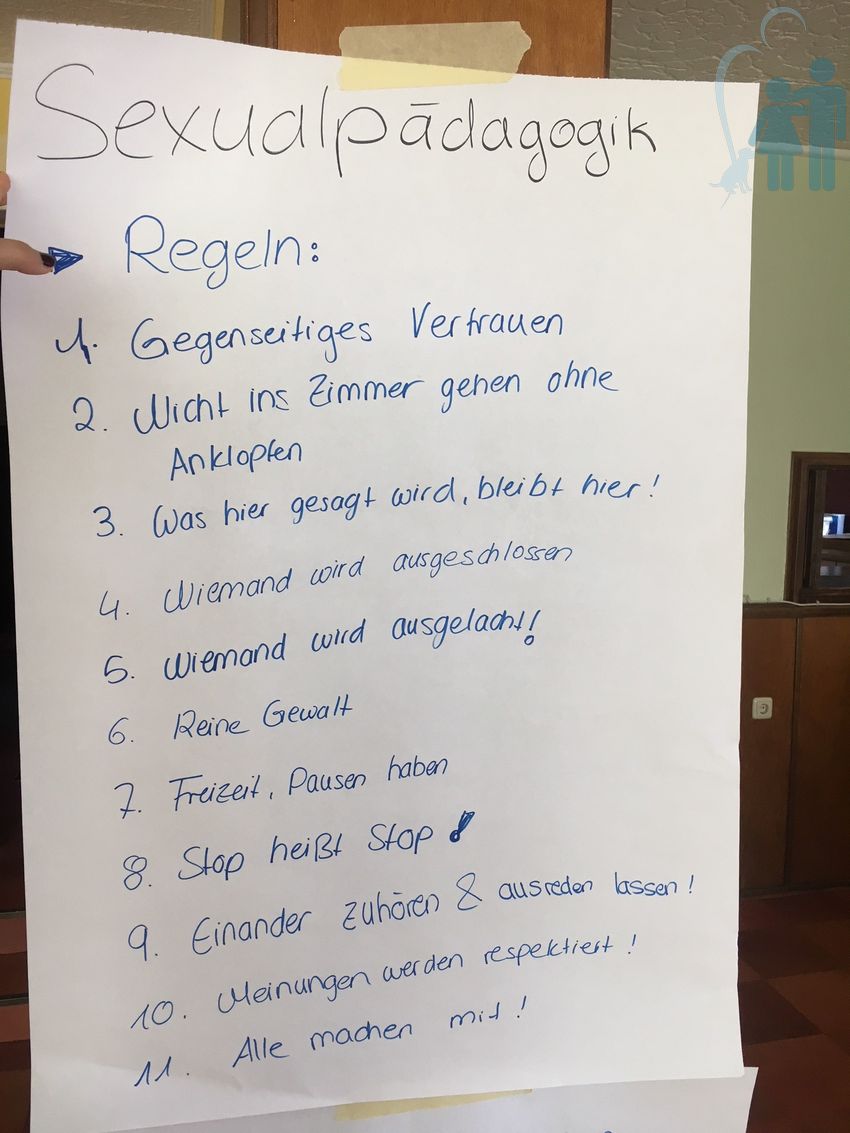 Sexualpädagogik
Regeln:
1. Gegenseitiges Vertrauen
2. Nicht ins Zimmer gehen ohne
Anklopfen
3. Was hier gesagt wird, bleibt hier!
4. Niemand wird ausgeschlossen
5. Niemand wird ausgelacht!
6. Keine Gewalt
7. Freizeit, Pausen haben
8. Stop heißt Stop!
9. Einander zuhören & ausreden lassen!
10. Meinungen werden respektiert!
11. Alle machen mit!